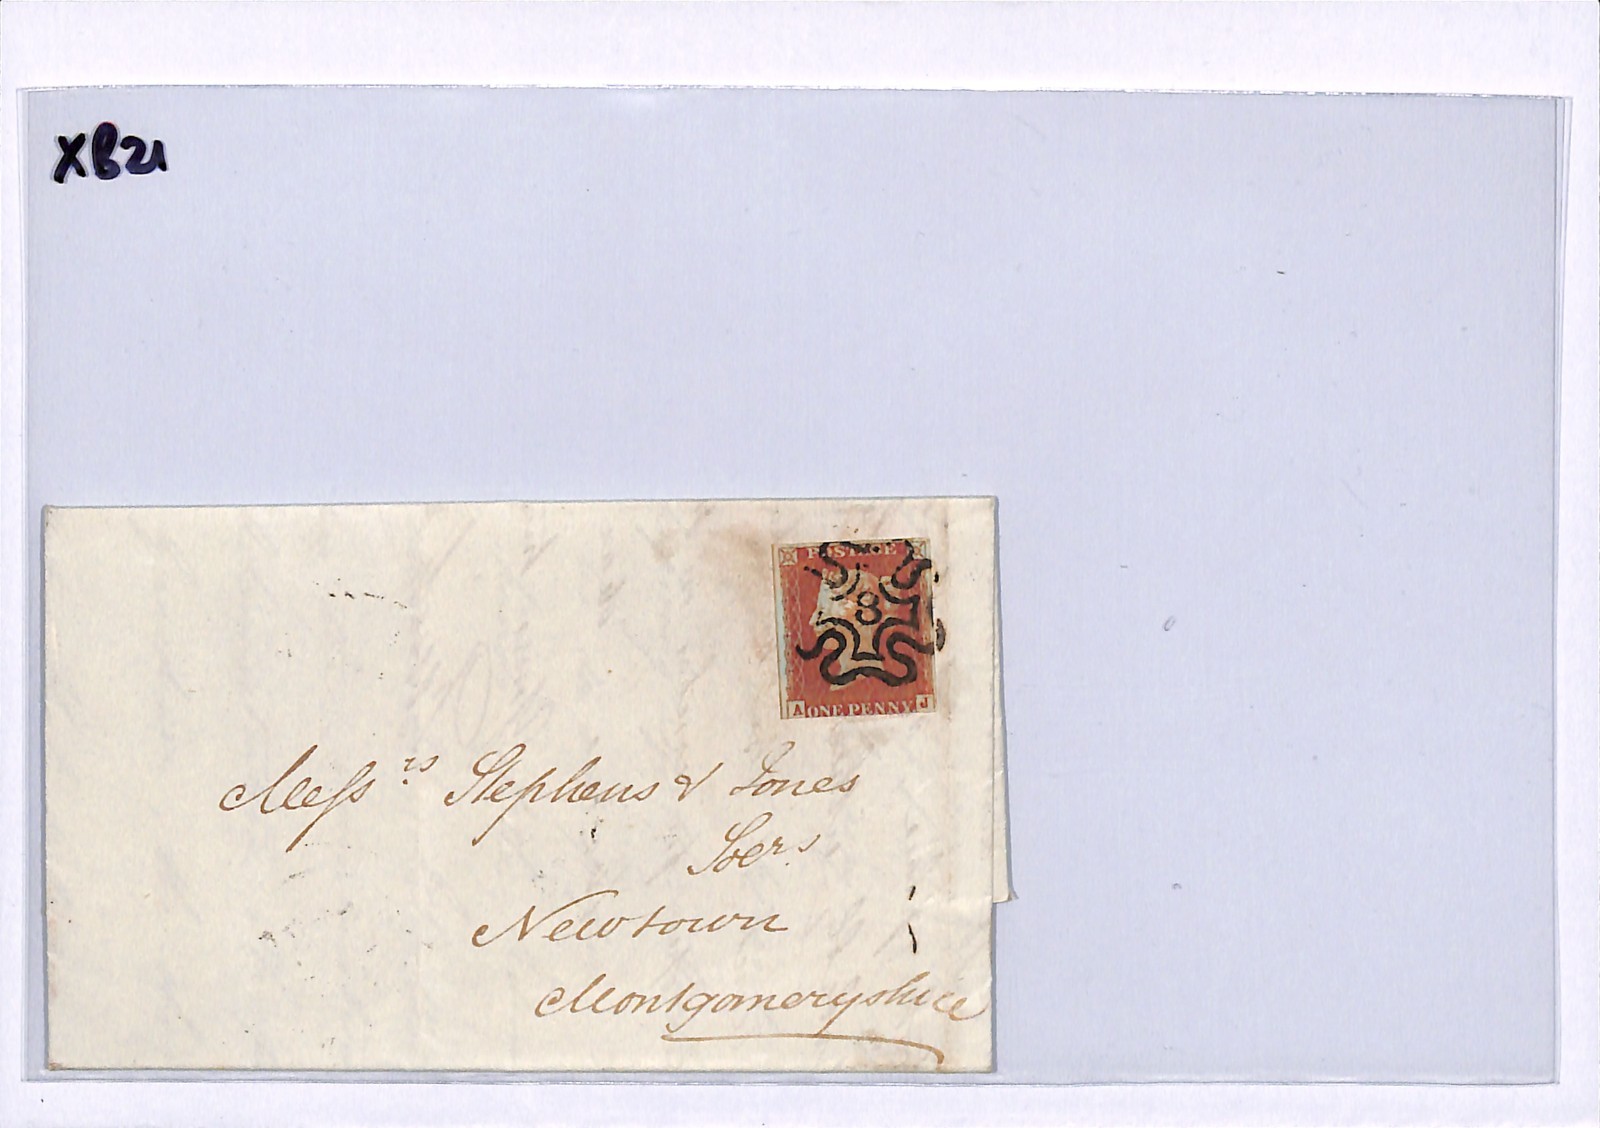 XB21
POSTAGE
8
A ONE PENNY J
Messrs Stephens & Jones
Newtown
Montgomeryshire